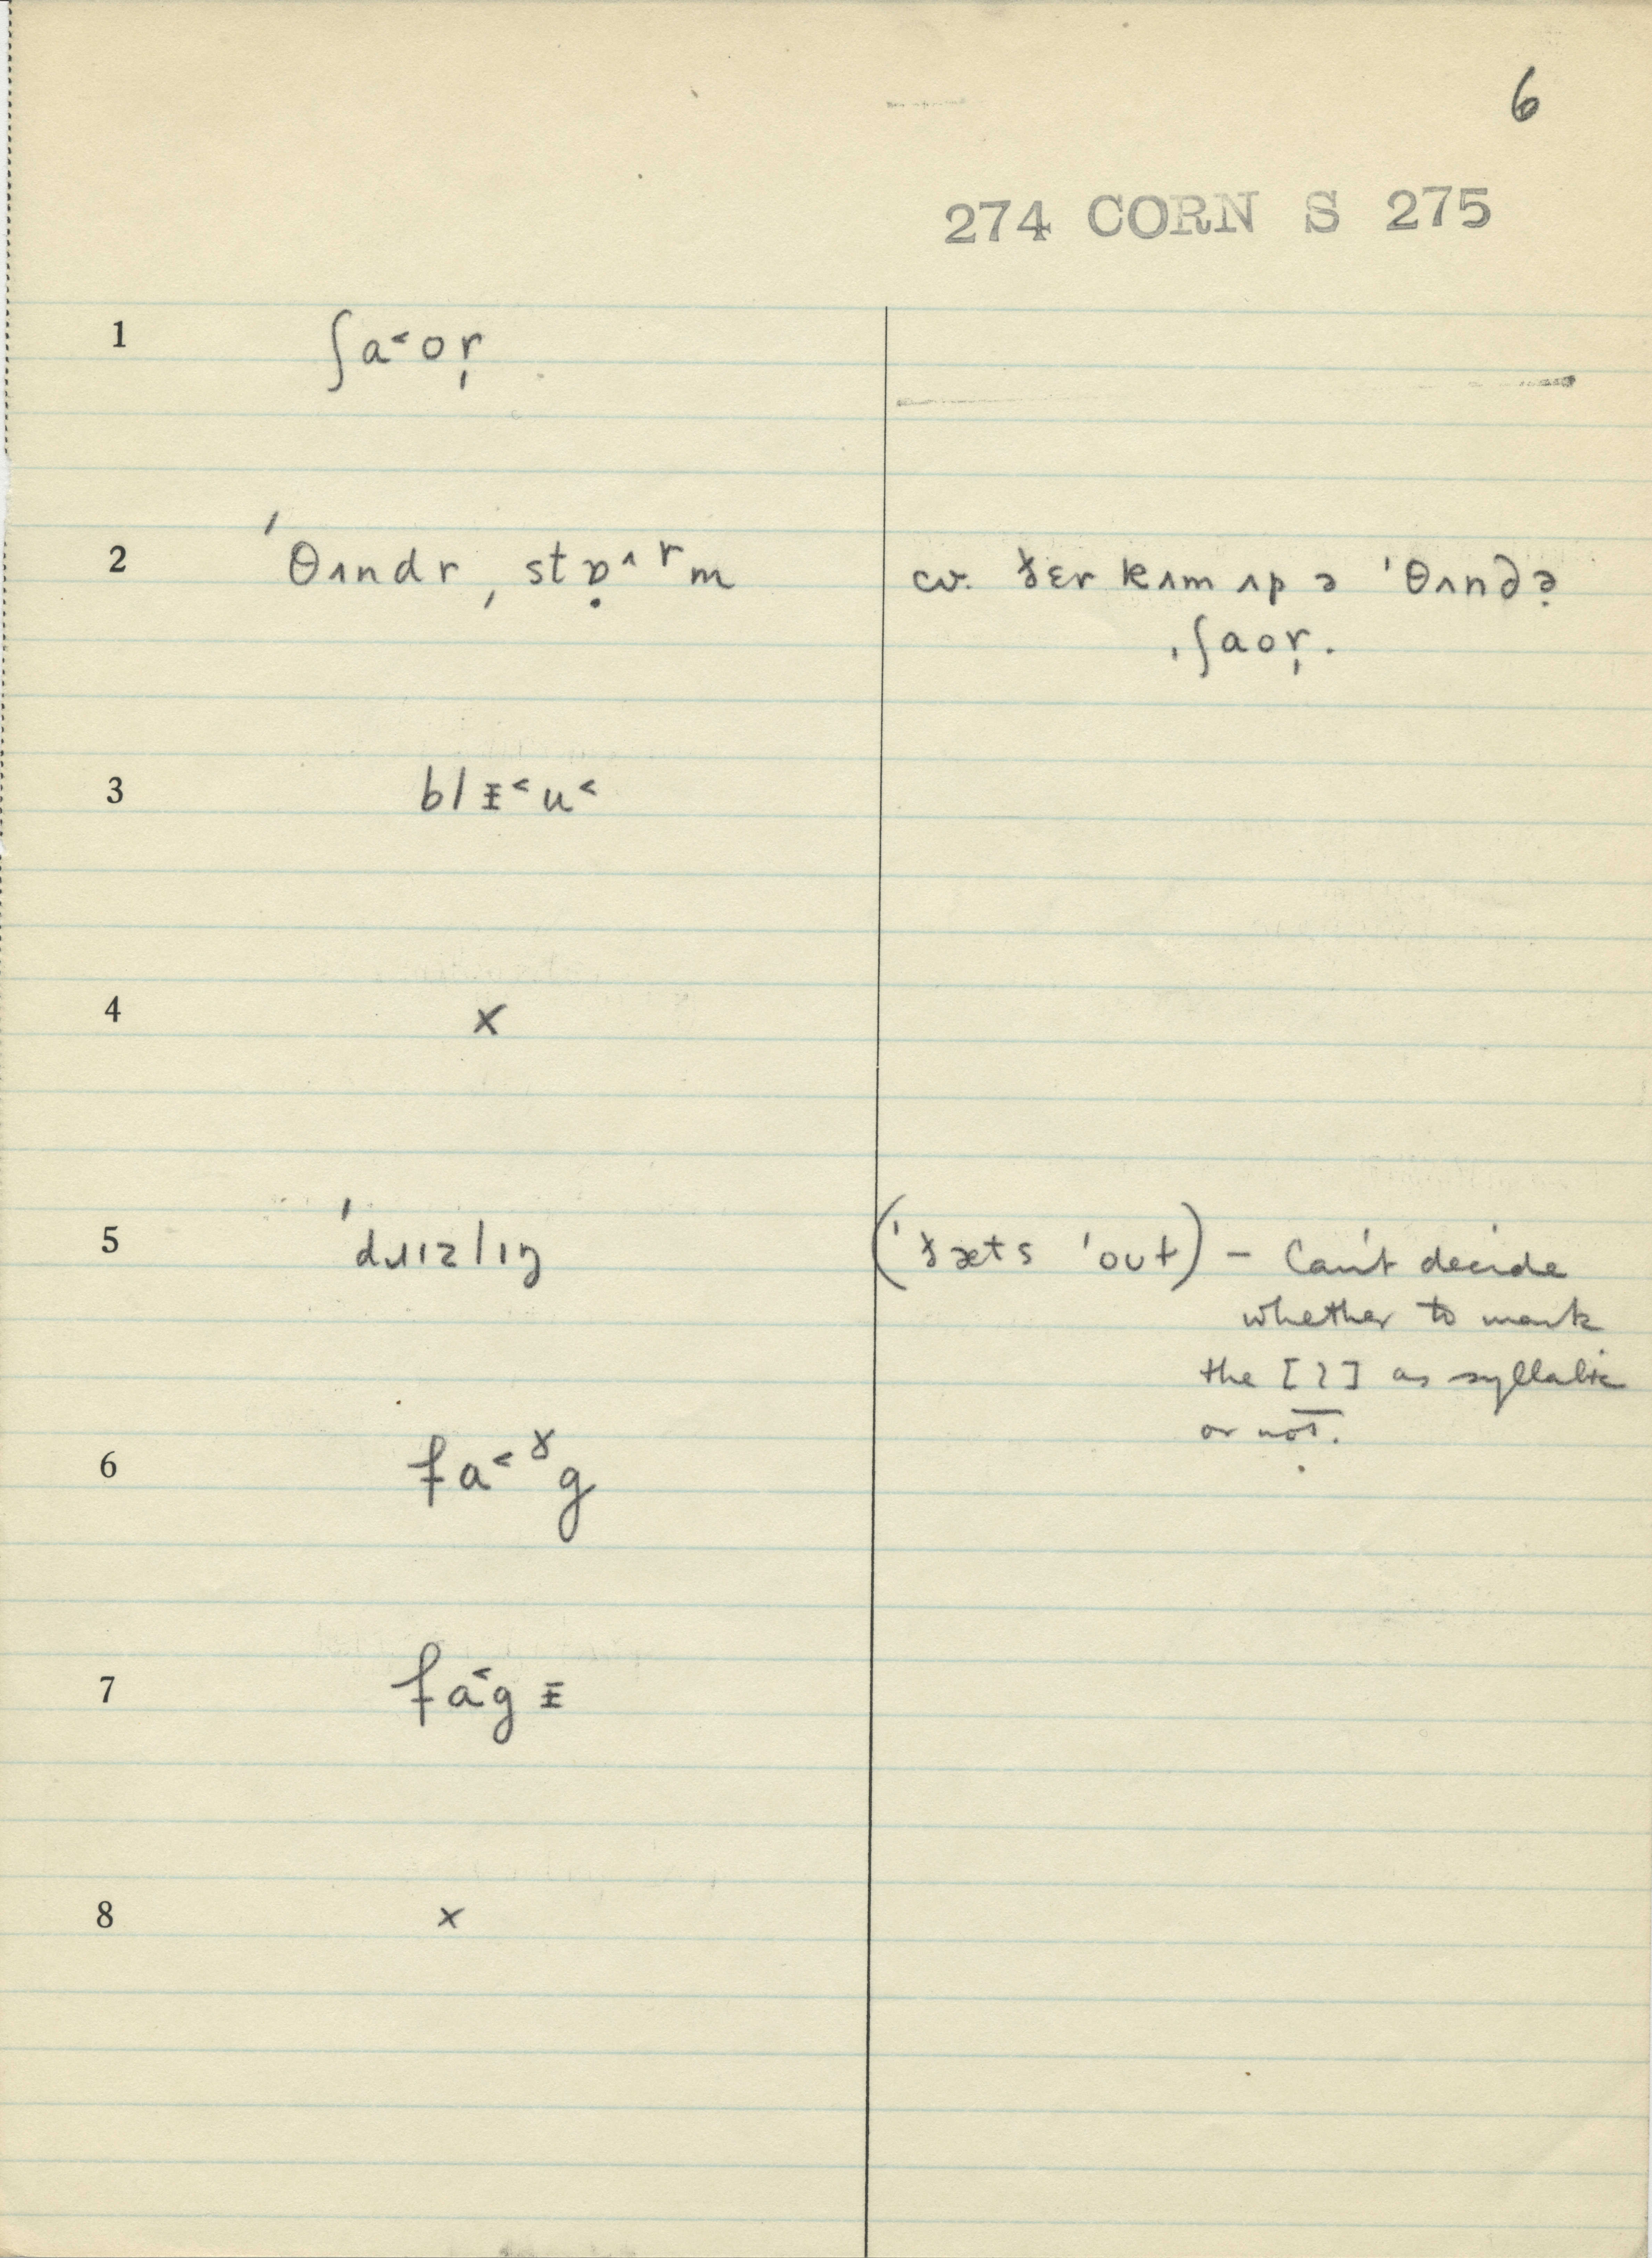 6
274 CORN S 275
1 ʃa˂or̩
2 ˈθʌndr ˌstɒ̣˄ʳm cv. ðɛr kʌm ʌp ə ˈθʌndə̣
ˌʃaor̩.
3 blɪ̵˂u˂
4 x
5 ˈdɹɪzlɪŋ (ˈðæts ˈout) – Can't decide
whether to mark
the [l] as syllabic
or not.
6 fa˂ˠg
7 fa˂gɪ̵
8 x